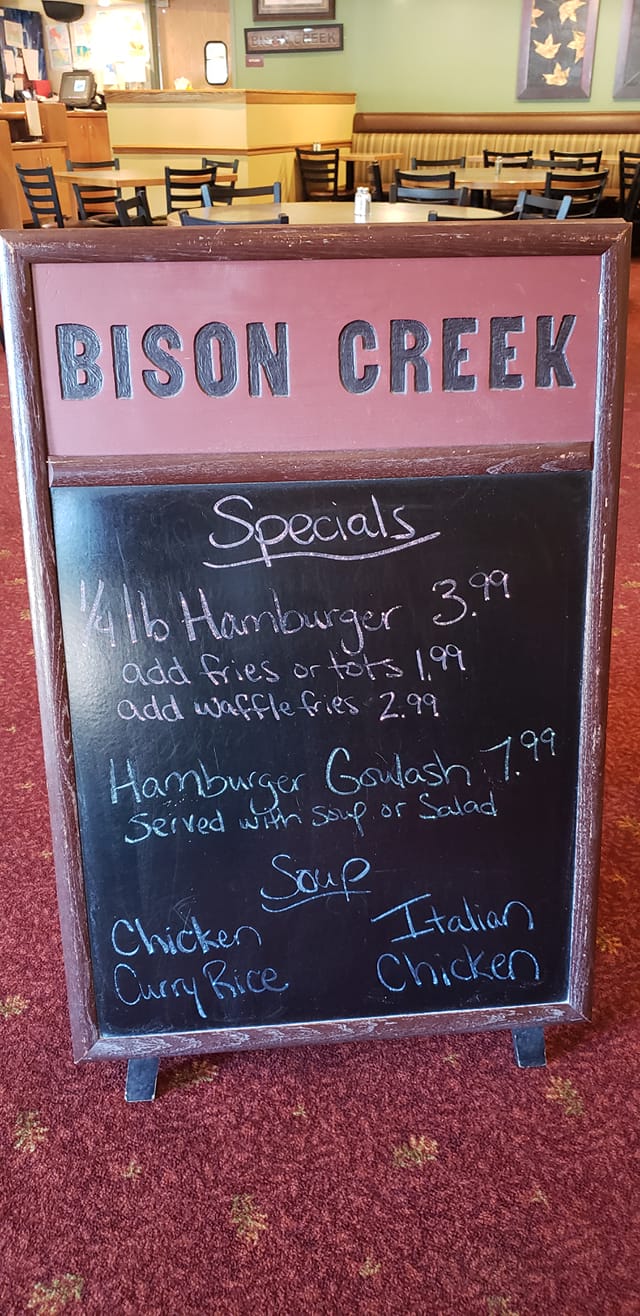 BISON CREEK
BISON CREEK
Specials
1/4 lb Hamburger 3.99
add fries or tots 1.99
add waffle fries 2.99
Hamburger Goulash 7.99
Served with soup or Salad
Soup
Chicken Curry Rice
Italian Chicken